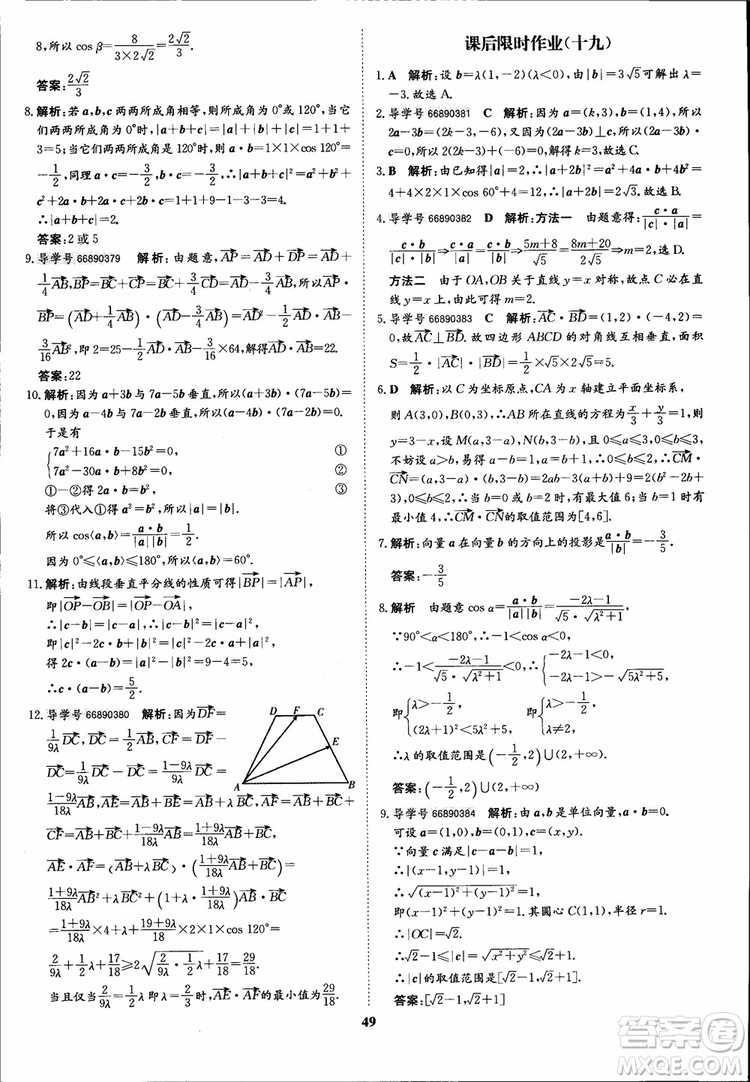 8,所以 cos β=8/(3×2√2)=2√2/3.
答案:2√2/3
8.解析:若a,b,c两两所成角相等,则所成角为0°或120°,当它
们两两所成角为0°时,|a+b+c|=|a|+|b|+|c|=1+1+
3=5;当它们两两所成角为120°时,a·b=|a||b|cos 120°=
-1/2,同理a·c=-3/2,b·c=-3/2,|a+b+c|²=a²+b²+
c²+2a·b+2b·c+2a·c=1+1+9-1-3-3=4.
∴|a+b+c|=2.
答案:2或5
9.导学号 66890379 解析:由题意,AP=AD+DP=AD+
1/4AB,BP=BC+CP=BC+3/4CD=AD-3/4AB,所以AP·
BP=(AD+1/4AB)·(AD-3/4AB)=AD²-1/2AD·AB-
3/16AB²,即2=25-1/2AD·AB-3/16×64,解得AD·AB=22.
答案:22
10.解析:因为a+3b与7a-5b垂直,所以(a+3b)·(7a-5b)=
0,因为a-4b与7a-2b垂直,所以(a-4b)·(7a-2b)=0.
于是有
{7a²+16a·b-15b²=0, ①
7a²-30a·b+8b²=0. ②
①-②得2a·b=b². ③
将③代入①得|a|=|b|,
所以cos⟨a,b⟩=a·b/(|a||b|)=1/2.
因为0°≤⟨a,b⟩≤180°,所以⟨a,b⟩=60°.
11.解析:由线段垂直平分线的性质可得|BP|=|AP|,
即|OP-OB|=|OP-OA|,
∴|c-b|=|c-a|,∴|c-b|²=|c-a|²,
即|c|²-2b·c+|b|²=|c|²-2a·c+|a|²,
得2c·(a-b)=|a|²-|b|²=9-4=5,
∴c·(a-b)=5/2.
12.导学号 66890380 解析:因为DF=
1/9λDC,DC=1/2AB,CF=DF-DC=
1/9λDC-DC=(1-9λ)/9λDC=
(1-9λ)/18λAB,AE=AB+BE=AB+λBC,AF=AB+BC+
CF=AB+BC+(1-9λ)/18λAB=(1+9λ)/18λAB+BC,
AE·AF=(AB+λBC)·((1+9λ)/18λAB+BC)=
(1+9λ)/18λAB²+λBC²+(1+λ·(1+9λ)/18λ)AB·BC=
(1+9λ)/18λ×4+λ+(19+9λ)/18×2×1×cos 120°=
2/9λ+1/2λ+17/18≥2√(2/9λ·1/2λ)+17/18=29/18.
当且仅当2/9λ=1/2λ即λ=2/3时,AE·AF的最小值为29/18.
D F C
E
A B
课后限时作业(十九)
1.A 解析:设b=λ(1,-2)(λ<0),由|b|=3√5可解出λ=
-3.故选A.
2.导学号 66890381 C 解析:因为a=(k,3),b=(1,4),所以
2a-3b=(2k-3,-6).因为(2a-3b)⊥c,所以(2a-3b)·c=
(2k-3,-6)·(2,1)=2(2k-3)-6=0,解得k=3.故选C.
3.B 解析:由已知得|a|=2,∴|a+2b|²=a²+4a·b+4b²=
4+4×2×1×cos 60°+4=12,∴|a+2b|=2√3.故选B.
4.导学号 66890382 D 解析:方法一 由题意得:c·a/(|c|·|a|)=
c·b/(|c|·|b|)⇒c·b/|b|=c·a/|a|⇒(5m+8)/√5=(8m+20)/(2√5)⇒m=2,故选D.
方法二 由于OA,OB关于直线y=x对称,故点C必在直
线y=x上,由此可得m=2.
5.导学号 66890383 C 解析:AC·BD=(1,2)·(-4,2)=
0,故AC⊥BD.故四边形ABCD的对角线互相垂直,面积
S=1/2·|AC|·|BD|=1/2×√5×2√5=5,故选C.
6.D 解析:以C为坐标原点,CA为x轴建立平面坐标系,
则A(3,0),B(0,3),所以AB所在直线的方程为x/3+y/3=
1,则y=3-x.设M(a,3-a),N(b,3-b),且0≤a≤3,0≤b≤3,
不妨设a>b,因为MN=√2,所以a-b=1,所以a=b+1,所以0≤b≤2,所以CM·
CN=(a,3-a)·(b,3-b)=2ab-3(a+b)+9=2(b²-2b+3),
0≤b≤2,∴当b=0或b=2时,有最大值6;当b=1时,有
最小值4,∴CM·CN的取值范围为[4,6].
7.解析:向量a在向量b的方向上的投影是a·b/|b|=-3/5.
答案:-3/5
8.解析 由题意cos α=a·b/(|a||b|)=(-2λ-1)/(√5·√(λ²+1)),
∵90°<α<180°,∴-1<cos α<0.
∴-1<(-2λ-1)/(√5·√(λ²+1))<0.∴{-2λ-1<0,
-2λ-1>-√(5λ²+5).
即{λ>-1/2,
(2λ+1)²<5λ²+5. 即{λ>-1/2,
λ≠2.
∴λ的取值范围是(-1/2,2)∪(2,+∞).
答案:(-1/2,2)∪(2,+∞)
9.导学号 66890384 解析:由a,b是单位向量,a·b=0.
可设a=(1,0),b=(0,1),c=(x,y).
∵向量c满足|c-a-b|=1,
∴|(x-1,y-1)|=1,
∴√((x-1)²+(y-1)²)=1,
即(x-1)²+(y-1)²=1.其圆心C(1,1),半径r=1.
∴|OC|=√2.
∴√2-1≤|c|=√(x²+y²)≤√2+1.
∴|c|的取值范围是[√2-1,√2+1].
答案:[√2-1,√2+1]
49
答案圈
MXQE.COM